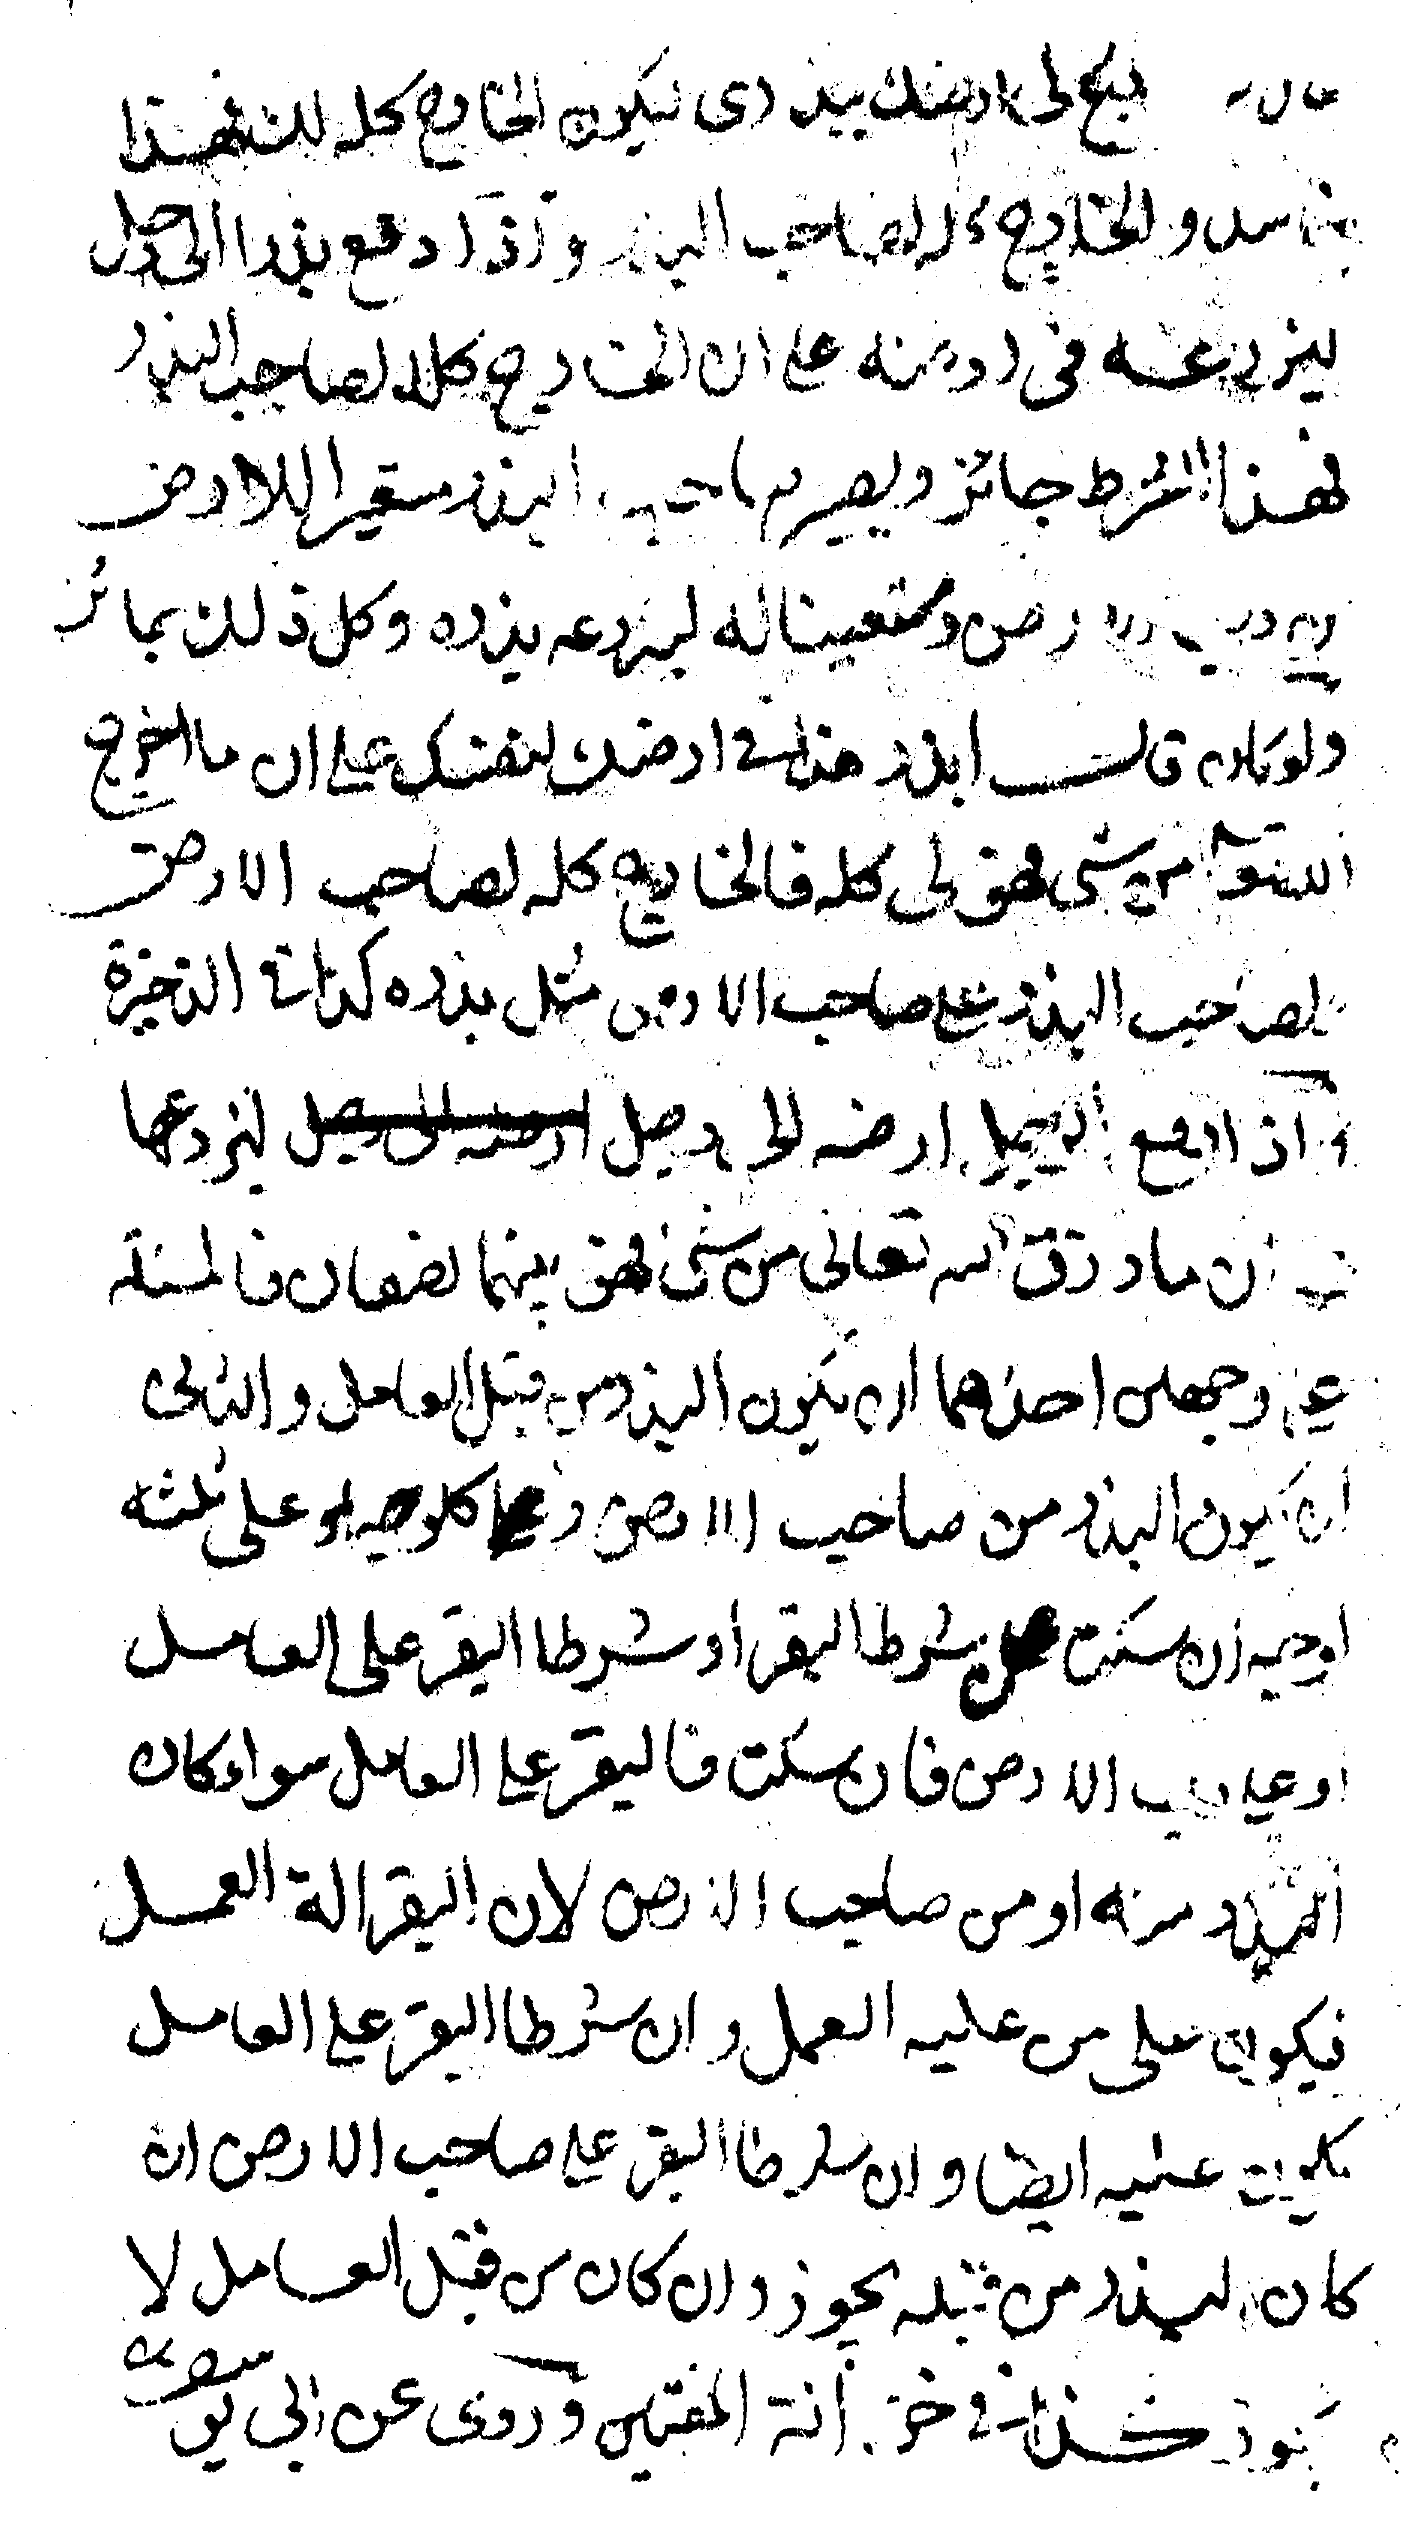 قال ازرع لى ارضك ببذرى ليكون الخارج كله لك فهذا
فاسد والخارج كله لصاحب البذر و اذا دفع بذرا الى رجل
ليزرعه فى ارضه على ان الخارج كله لصاحب البذر
فهذا الشرط جائز ويصير صاحب البذر مستعيرا للارض
من رب الارض ومستعينا له ليزرعه بذره وكل ذلك جائز
ولو كان قال ابذر هذا فى ارضك لنفسك على ان ما اخرج
الله تعالى من شئ فهو لى كله فالخارج كله لصاحب الارض
لصاحب البذر على صاحب الارض مثل بذره كذا فى الذخيرة
و اذا دفع الرجل ارضه الى رجل ليزرعها
ان ما رزق الله تعالى من شئ فهو بينهما نصفان فالمسئلة
على وجهين احدهما ان يكون البذر من قبل العامل والثانى
ان يكون البذر من صاحب الارض و كل وجه على ثلثه
اوجه ان سكت عن شرط البقر او شرطا البقر على العامل
او على رب الارض فان سكت فالبقر على العامل سواء كان
البذر منه او من صاحب الارض لان البقر الة العمل
فيكون على من عليه العمل و ان شرطا البقر على العامل
يكون عليه ايضا و ان شرطا البقر على صاحب الارض ان
كان البذر من قبله يجوز و ان كان من قبل العامل لا
يجوز كذا فى خزانة المفتين وروى عن ابى يوسف